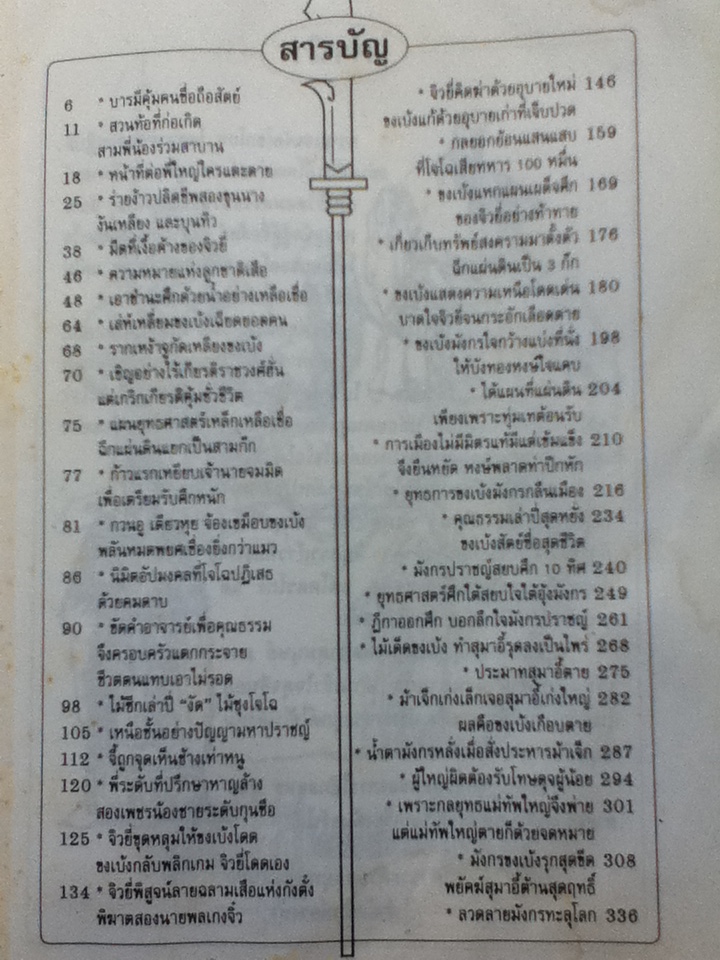 สารบัญ
6 * บารมีคุ้มคนซื่อถือสัตย์
11 * สวนท้อที่ก่อเกิด
สามพี่น้องร่วมสาบาน
18 * หน้าที่ต่อพี่ใหญ่ใครแตะตาย
25 * ร่ายง้าวปลิดชีพสองขุนนาง
งันเหลียง และบุนทิว
38 * มีดที่เงื้อค้างของจิวยี่
46 * ความหมายแห่งลูกชาติเสือ
48 * เอาชำนะศึกด้วยน้ำอย่างเหลือเชื่อ
64 * เล่ห์เหลี่ยมขงเบ้งเฉียดยอดคน
68 * รากเหง้าจูกัดเหลียงขงเบ้ง
70 * เชิญอย่างไร้เกียรติราชวงศ์ฮั่น
แต่เกริกเกียรติคุ้มชั่วชีวิต
75 * แผนยุทธศาสตร์เหล็กเหลือเชื่อ
ฉีกแผ่นดินแยกเป็นสามก๊ก
77 * ก้าวแรกเหยียบเจ้านายจมมิด
เพื่อเตรียมรับศึกหนัก
81 * กวนอู เตียวหุย จ้องเขมือบขงเบ้ง
พลันหมดพยศเชื่องยิ่งกว่าแมว
86 * นิมิตอัปมงคลที่โจโฉปฏิเสธ
ด้วยคมดาบ
90 * ขัดคำอาจารย์เพื่อคุณธรรม
จึงครอบครัวแตกกระจาย
ชีวิตตนแทบเอาไม่รอด
98 * ไม้ซีกเล่าปี่ "งัด" ไม้ซุงโจโฉ
105 * เหนือชั้นอย่างปัญญามหาปราชญ์
112 * จี้ถูกจุดเห็นช้างเท่าหนู
120 * พี่ระดับที่ปรึกษาหาญล้าง
สองเพชรน้องชายระดับกุนซือ
125 * จิวยี่ขุดหลุมให้ขงเบ้งโดด
ขงเบ้งกลับพลิกเกม จิวยี่โดดเอง
134 * จิวยี่พิสูจน์ลายฉลามเสือแห่งกังตั๋ง
พิฆาตสองนายพลเกงจิ๋ว
* จิวยี่คิดฆ่าด้วยอุบายใหม่ 146
ขงเบ้งแก้ด้วยอุบายเก่าที่เจ็บปวด
* กลยอกย้อนแสนแสบ 159
ที่โจโฉเสียทหาร 100 หมื่น
* ขงเบ้งแหกแผนเผด็จศึก 169
ของจิวยี่อย่างท้าทาย
* เกี่ยวเก็บทรัพย์สงครามมาตั้งตัว 176
ฉีกแผ่นดินเป็น 3 ก๊ก
* ขงเบ้งแสดงความเหนือโดดเด่น 180
บาดใจจิวยี่จนกระอักเลือดตาย
* ขงเบ้งมังกรใจกว้างแบ่งที่นั่ง 198
ให้บังทองหงษ์ใจแคบ
* ได้แผนที่แผ่นดิน 204
เพียงเพราะทุ่มเทต้อนรับ
* การเมืองไม่มีมิตรแท้มีแต่เข้มแข็ง 210
จึงยืนหยัด หงษ์พลาดท่าปีกหัก
* ยุทธการขงเบ้งมังกรกลืนเมือง 216
* คุณธรรมเล่าปี่สุดหยั่ง 234
ขงเบ้งสัตย์ซื่อสุดชีวิต
* มังกรปราชญ์สยบศึก 10 ทิศ 240
* ยุทธศาสตร์ศึกใต้สยบใจใต้อุ้งมังกร 249
* ฎีกาออกศึก บอกลึกใจมังกรปราชญ์ 261
* ไม้เด็ดขงเบ้ง ทำสุมาอี้รุดลงเป็นไพร่ 268
* ประมาทสุมาอี้ตาย 275
* ม้าเจ็กเก่งเล็กเจอสุมาอี้เก่งใหญ่ 282
ผลคือขงเบ้งเกือบตาย
* น้ำตามังกรหลั่งเมื่อสั่งประหารม้าเจ็ก 287
* ผู้ใหญ่ผิดต้องรับโทษดุจผู้น้อย 294
* เพราะกลยุทธแม่ทัพใหญ่จึงพ่าย 301
แต่แม่ทัพใหญ่ตายก็ด้วยจดหมาย
* มังกรขงเบ้งรุกสุดขีด 308
พยัคฆ์สุมาอี้ต้านสุดฤทธิ์
* ลวดลายมังกรทะลุโลก 336